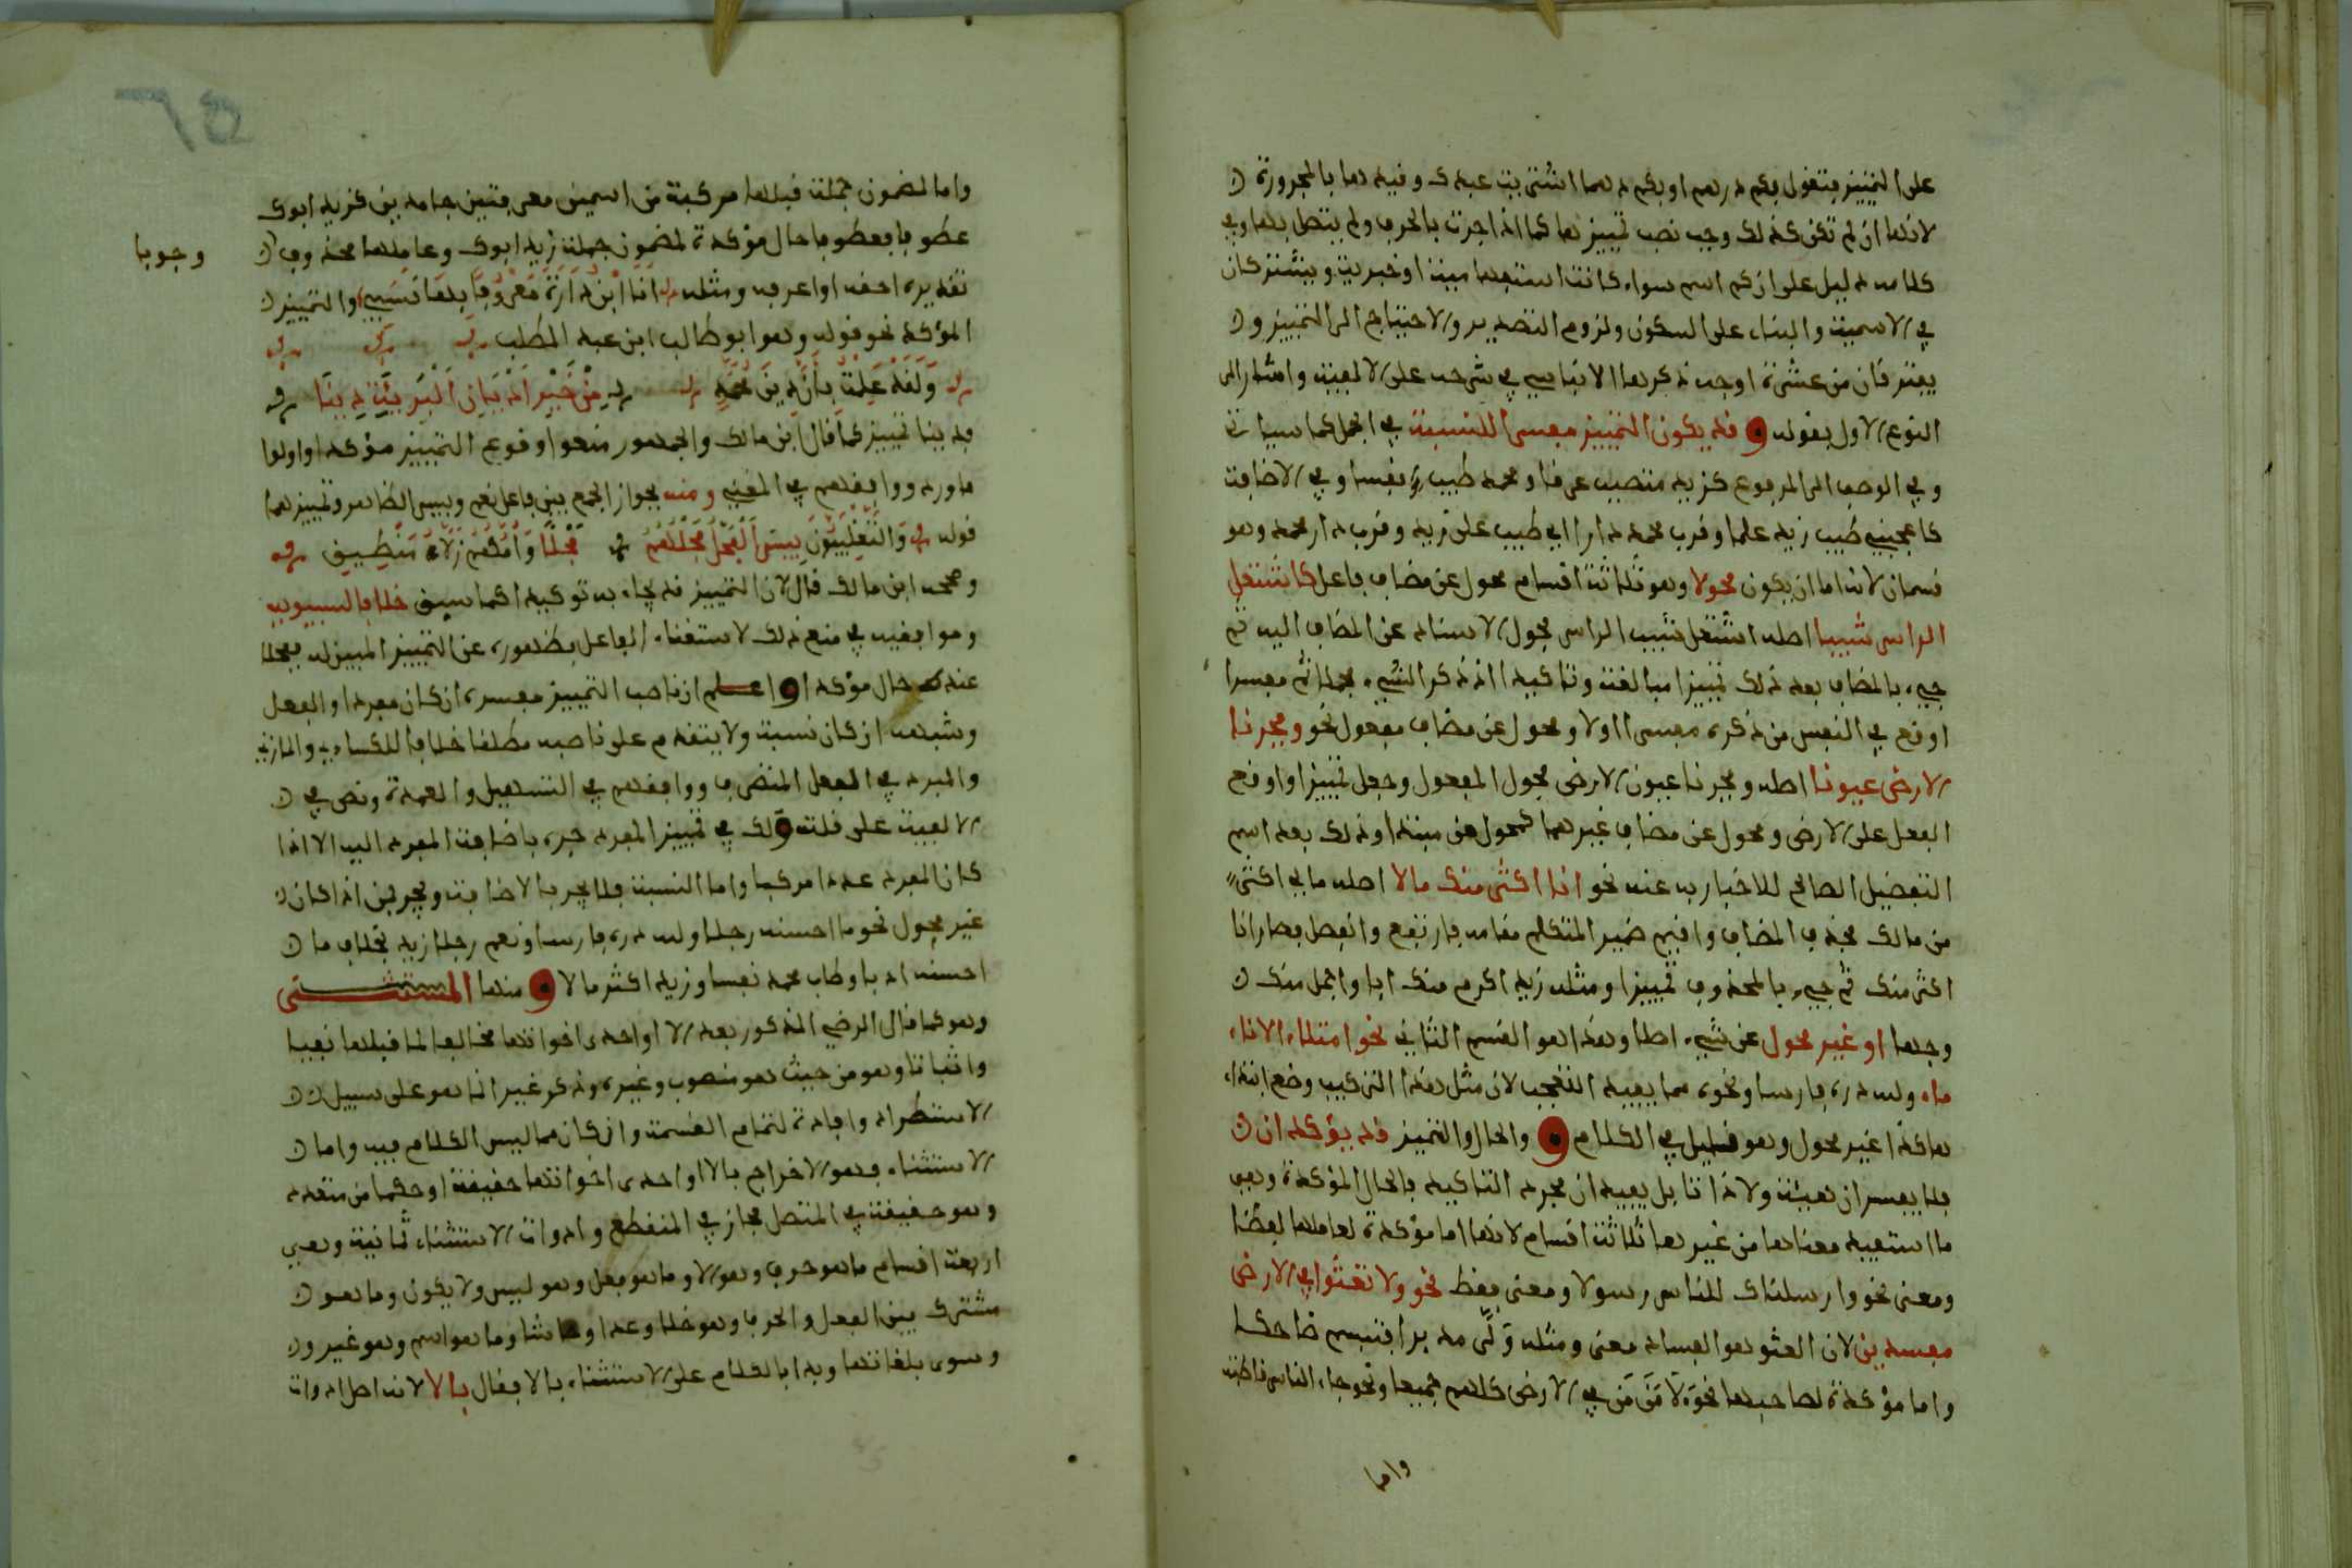 على التمييز فتقول بكم درهم او بكم درهما اشتريت عبدك وقيدها بالمجرورة
لانها ان لم تكن كذلك وجب نصب تمييزها كما اذا جرت بالحرف ولم يتصل بها وفي
كلامه دليل على ان كم اسم سواء كانت استفهامية او خبرية ويشتركان
في الاسمية والبناء على السكون ولزوم التصدير والاحتياج الى التمييز و
يفترقان من عشرة اوجه ذكرها الانباسي في شرحه على الالفية واشار الى
النوع الاول بقوله و قد يكون التمييز مفسرا للنسبة في الجمل كما سياتي
وفي الوصف الى المرفوع كزيد متصبب عرقا ومحمد طيب نفسا وفي الاضافة
كاعجبني طيب زيد علما وقرب محمد دارا اي طيب علم زيد وقرب دار محمد وهو
قسمان لانه اما ان يكون محولا وهو ثلاثة اقسام محول عن مضاف فاعل كاشتعل
الراس شيبا اصله اشتعل شيب الراس فحول الاسناد عن المضاف اليه ثم
جيء بالمضاف بعد ذلك تمييزا مبالغة وتاكيدا اذ ذكر الشيء مجملا ثم مفسرا
اوقع في النفس من ذكره مفسرا اولا ومحول عن مضاف مفعول نحو وفجرنا
الارض عيونا اصله وفجرنا عيون الارض فحول المفعول وجعل تمييزا واوقع
الفعل على الارض ومحول عن مضاف غيرهما كمحول عن مبتدا وذلك بعد اسم
التفضيل الصالح للاخبار به عنه نحو انا اكثر منك مالا اصله مالي اكثر
من مالك فحذف المضاف واقيم ضمير المتكلم مقامه فارتفع وانفصل فصار انا
اكثر منك ثم جيء بالمحذوف تمييزا ومثله زيد اكرم منك ابا واجمل منك
وجها او غير محول عن شيء اصلا وهذا هو القسم الثاني نحو امتلاء الاناء
ماء ولله دره فارسا ونحوه مما يفيد التعجب لان مثل هذا التركيب وضع ابتداء
هكذا غير محول وهو قليل في الكلام و والحال والتمييز قد يؤكدان
فلا يفسران هيئة ولا ذاتا بل يفيدان مجرد التاكيد فالحال المؤكدة وهي
ما استفيد معناها من غيرها ثلاثة اقسام لانها اما مؤكدة لعاملها لفظا
ومعنى نحو وارسلناك للناس رسولا ومعنى فقط نحو ولا تعثوا في الارض
مفسدين لان العثو هو الفساد معنى ومثله ولى مدبرا فتبسم ضاحكا
واما مؤكدة لصاحبها نحو لامن من في الارض كلهم جميعا ونحو جاء الناس قاطبة
واما
واما لمضمون جملة قبلها مركبة من اسمين معرفتين جامدين كزيد ابوك
عطوفا فعطوفا حال مؤكدة لمضمون جملة زيد ابوك وعاملها محذوف
وجوبا
تقديره احقه او اعرفه ومثله انا ابن دارة معروفا بها نسبي والتمييز
المؤكد نحو قوله وهو ابو طالب ابن عبد المطلب
ولقد علمت بان دين محمد من خير اديان البرية دينا
فدينا تمييز كما قال ابن مالك والجمهور منعوا وقوع التمييز مؤكدا واولوا
ما ورد ووافقهم في المغني ومنه بجواز الجمع بين فاعل نعم وبيس الظاهر وتمييزهما
قوله والتغلبيون بيس الفحل فحلهم فحلا وامهم زلاء منطيق
وصححه ابن مالك قال لان التمييز قد يجاء به توكيدا كما سبق خلافا لسيبويه
وموافقيه في منع ذلك لاستغناء الفاعل بظهوره عن التمييز المبين له ففحلا
عندهم حال مؤكدا و اعلم ان ناصب التمييز مفسره ان كان مفردا والفعل
وشبهه ان كان نسبة ولا يتقدم على ناصبه مطلقا خلافا للكساءي والمازني
والمبرد في الفعل المتصرف ووافقهم في التسهيل والعمدة ونص في
الالفية على قلته ولك في تمييز المفرد جره باضافة المفرد اليه الا اذا
كان المفرد عددا مركبا واما النسبة فلا يجر بالاضافة ويجر بمن اذا كان
غير محول نحو ما احسنه رجلا ولله دره فارسا ونعم رجلا زيد بخلاف ما
احسنه ادبا وطاب محمد نفسا وزيد اكثر مالا و منها المستثنى
وهو كما قال الرضي المذكور بعد الا او احدى اخواتها مخالفا لما قبلها نفيا
واثباتا وهو من حيث هو منصوب وغيره وذكر غير انما هو على سبيل
الاستطراد وافادة لتمام القسمة وان كان مما ليس الكلام فيه واما
الاستثناء فهو الاخراج بالا او احدى اخواتها حقيقة او حكما من متعدد
وهو حقيقة في المتصل مجاز في المنقطع وادوات الاستثناء ثمانية وهي
اربعة اقسام ما هو حرف وهو الا وما هو فعل وهو ليس ولا يكون وما هو
مشترك بين الفعل والحرف وهو خلا وعدا وحاشا وما هو اسم وهو غير و
وسوى بلغاتها وبدا بالكلام على الاستثناء بالا فقال بالا لانه اصل ادوات